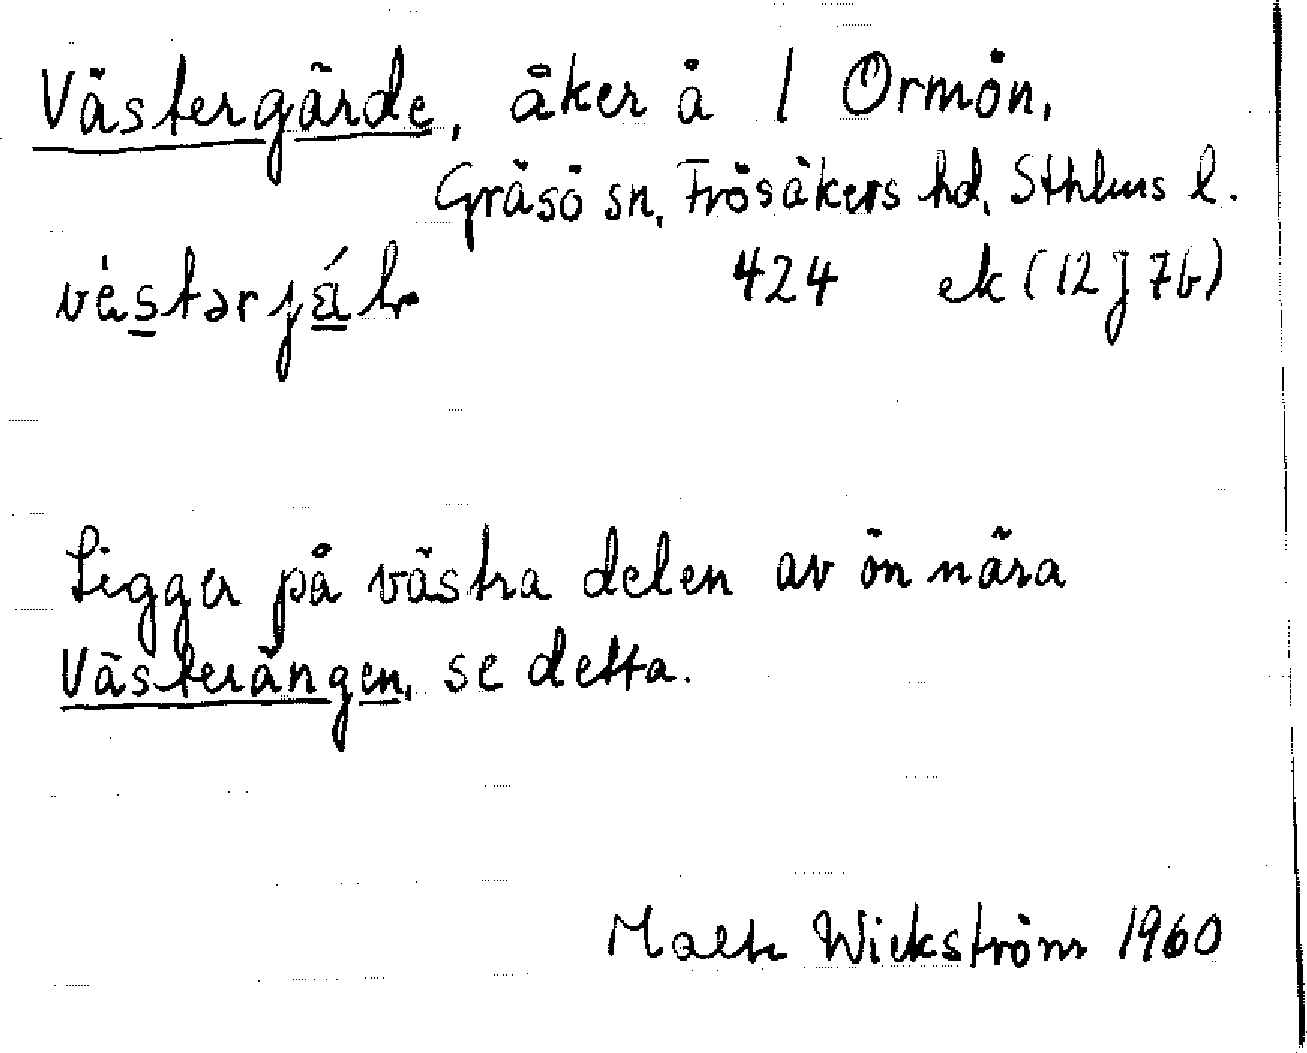 Västergärde, åker å 1 Ormön,
Gräsö sn, Frösåkers hd, Sthlms l.
424 ek (12J7b)
Ligger på västra delen av ön nära
Västerängen, se detta.
Wickström 1960